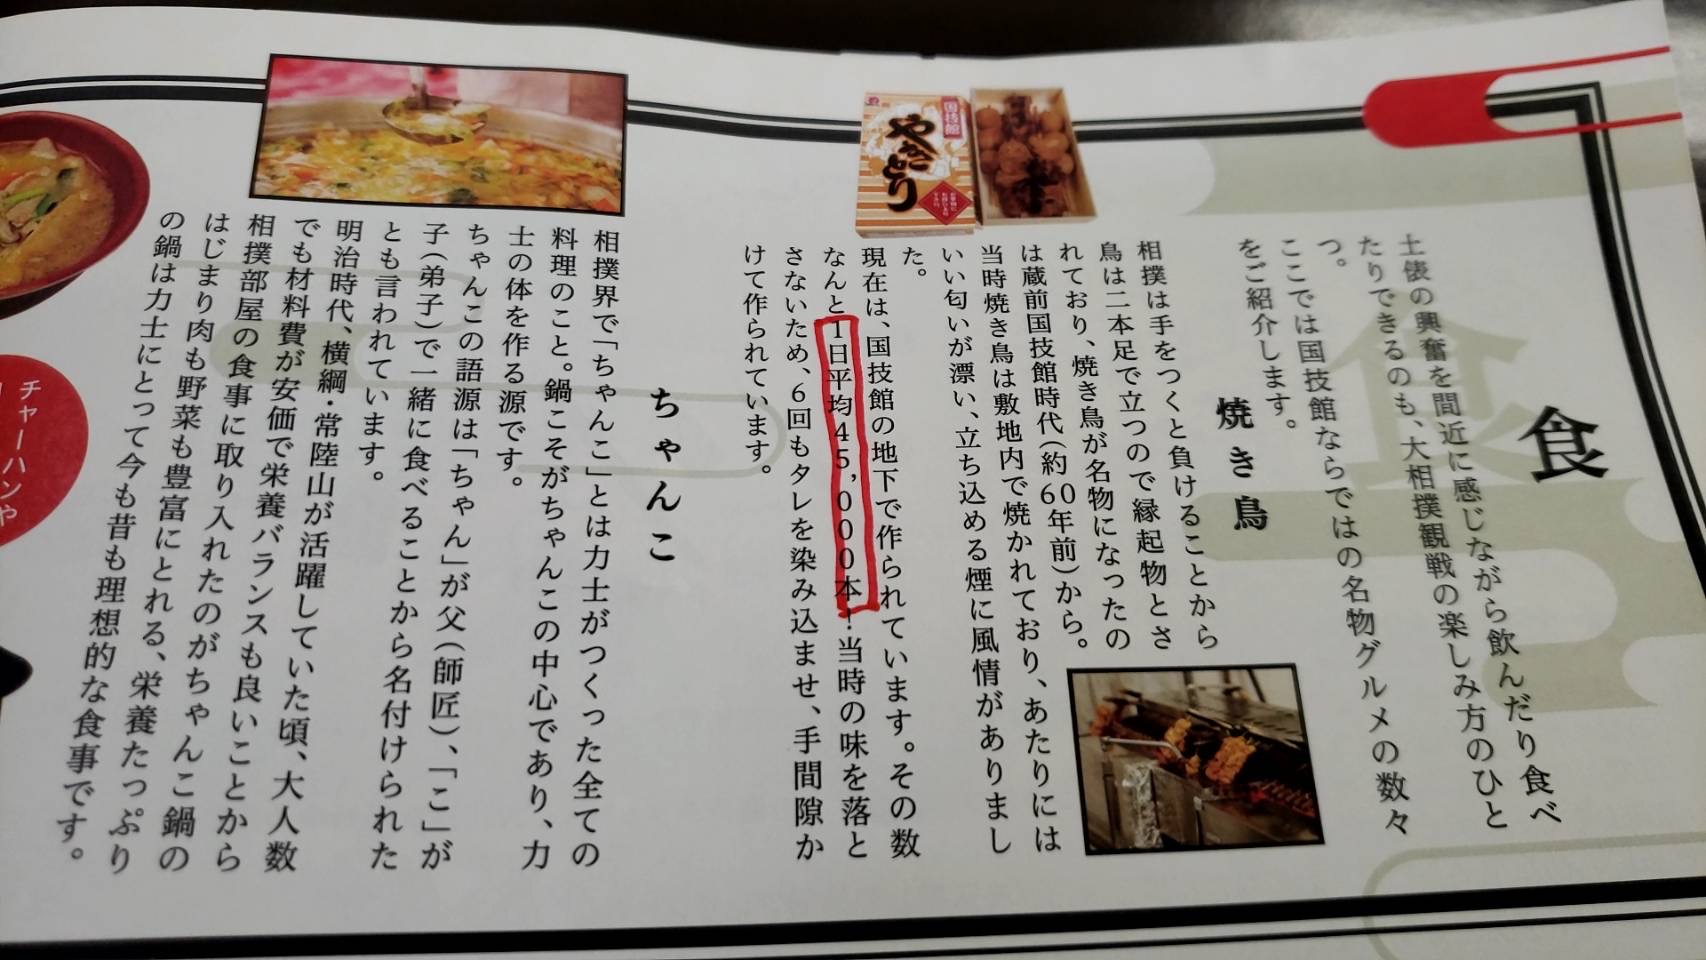 食
土俵の興奮を間近に感じながら飲んだり食べ
たりできるのも、大相撲観戦の楽しみ方のひと
つ。
ここでは国技館ならではの名物グルメの数々
をご紹介します。
焼き鳥
相撲は手をつくと負けることから
鳥は二本足で立つので縁起物とさ
れており、焼き鳥が名物になったの
は蔵前国技館時代(約60年前)から。
当時焼き鳥は敷地内で焼かれており、あたりには
いい匂いが漂い、立ち込める煙に風情がありまし
た。
現在は、国技館の地下で作られています。その数
なんと1日平均45,000本!当時の味を落と
さないため、6回もタレを染み込ませ、手間隙か
けて作られています。
国技館
やきとり
ちゃんこ
相撲界で「ちゃんこ」とは力士がつくった全ての
料理のこと。鍋こそがちゃんこの中心であり、力
士の体を作る源です。
ちゃんこの語源は「ちゃん」が父(師匠)、「こ」が
子(弟子)で一緒に食べることから名付けられた
とも言われています。
明治時代、横綱・常陸山が活躍していた頃、大人数
でも材料費が安価で栄養バランスも良いことから
相撲部屋の食事に取り入れたのがちゃんこ鍋の
はじまり肉も野菜も豊富にとれる、栄養たっぷり
の鍋は力士にとって今も昔も理想的な食事です。
チャーハンや